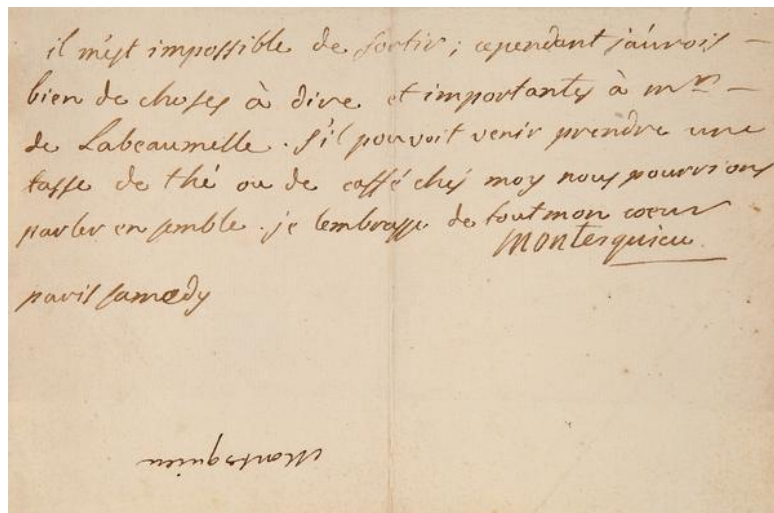 il m'est impossible de sortir ; cependant j'aurois –
bien de choses à dire et importantes à mrn –
de Labeaumelle . s'il pouvoit venir prendre une
tasse de thé ou de caffé chés moy nous pourrions
parler ensemble . je lembrasse de tout mon coeur
Montesquieu
paris samedy
Montesquieu